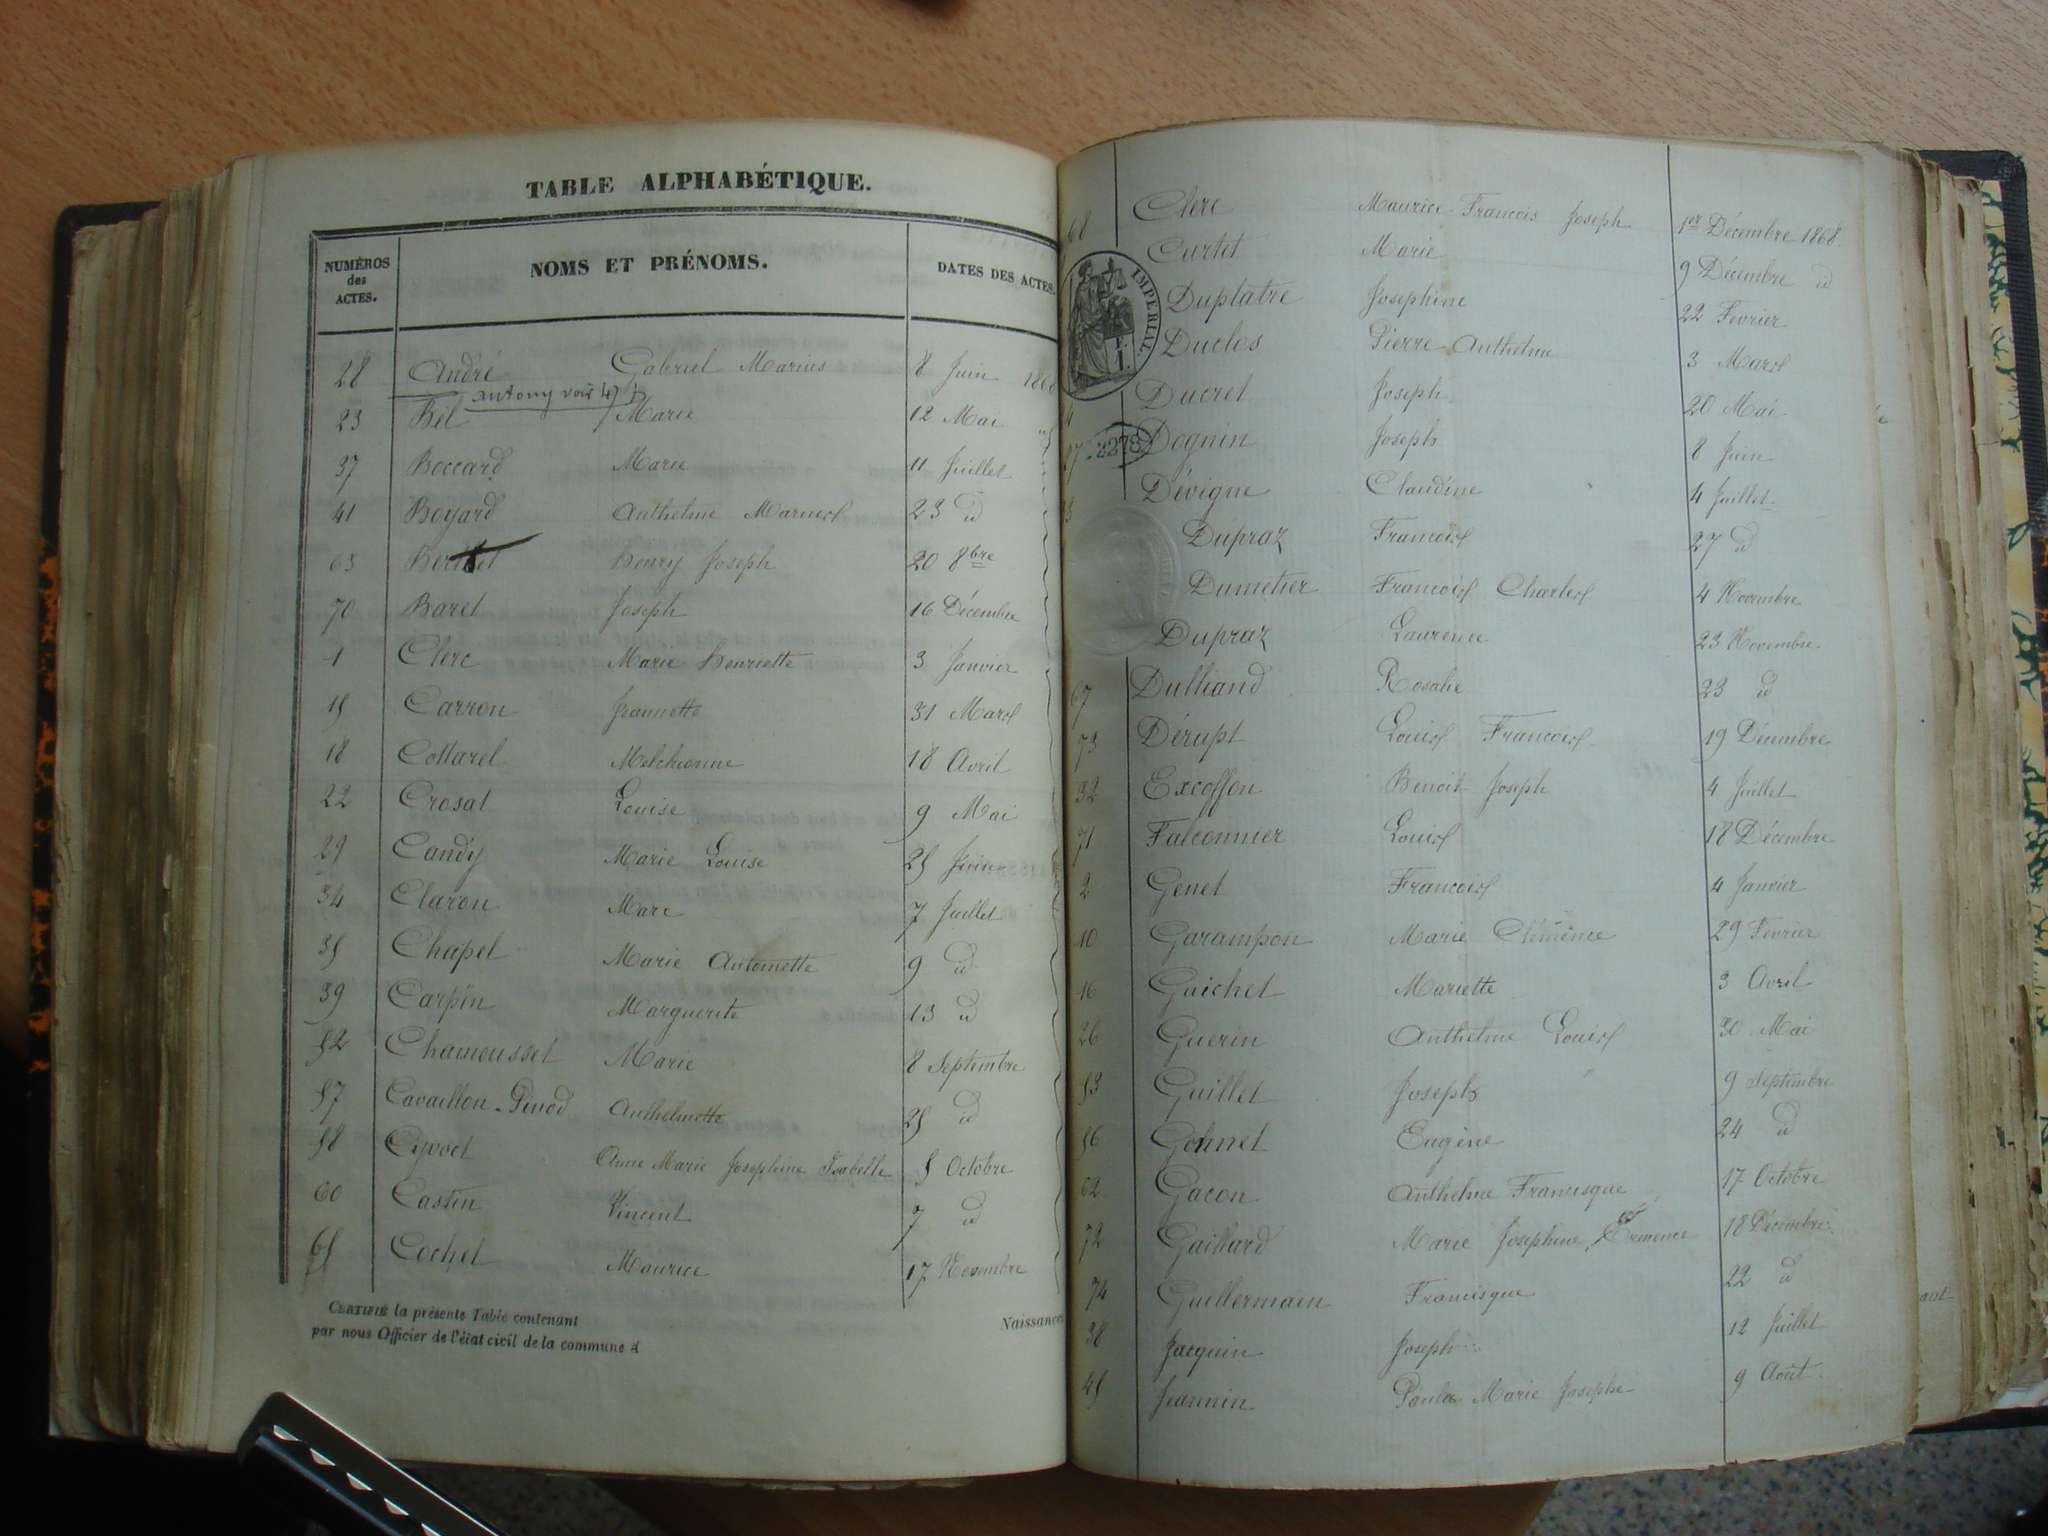 TABLE ALPHABÉTIQUE.
NUMÉROS des ACTES. NOMS ET PRÉNOMS. DATES DES ACTES.
28 André Gabriel Marius 8 Juin 1868
Antony voir 47
23 Bel Marie 12 Mai id
37 Boccard Marie 11 Juillet
41 Boyard Anthelme Marius 23 d
63 Berthet Henry Joseph 20 8bre
70 Baret Joseph 16 Décembre
1 Clerc Marie Henriette 3 Janvier
15 Carron Jeannette 31 Mars
18 Cottarel Melchionne 18 Avril
22 Crosat Louise 9 Mai
29 Candy Marie Louise 25 Juin
34 Claron Marc 7 Juillet
35 Chapel Marie Antoinette 9 d
39 Carpin Marguerite 13 d
52 Chamousset Marie 8 Septembre
57 Cavaillon-Pinod Anthelmette 25 d
58 Cyvoct Anne Marie Josephine Isabelle 5 Octobre
60 Castin Vincent 7 d
65 Cochet Maurice 17 Novembre
CERTIFIÉ la présente Table contenant Naissances
par nous Officier de l'état civil de la commune d
68 Clerc Maurice Francois Joseph 1er Décembre 1868.
Curtet Marie 9 Décembre d
IMPERIAL.
Duplatre Josephine 22 Fevrier
Duclos Pierre Anthelme 3 Mars
Ducret Joseph 20 Mai
8278
Dognin Joseph 8 Juin
Dévigne Claudine 4 Juillet
Dupraz Francois 27 d
Dumetier Francois Charles 4 Novembre
Dupraz Laurence 23 Novembre
67 Dulliand Rosalie 23 d
73 Dérupt Louis Francois 19 Décembre
32 Excoffon Benoit Joseph 4 Juillet
71 Falconnier Louis 18 Décembre
2 Genet Francois 4 Janvier
10 Garampon Marie Clémence 29 Fevrier
16 Gaichet Mariette 3 Avril
26 Guerin Anthelme Louis 30 Mai
53 Guillet Joseph 9 Septembre
56 Gohnet Eugène 24 d
62 Gacon Anthelme Francisque 17 Octobre
72 Gaillard Marie Josephine Ermence 18 Décembre
74 Guillermain Francisque 22 d
38 Jacquin Joseph 12 Juillet
45 Jeannin Paula Marie Josephe 9 Aout